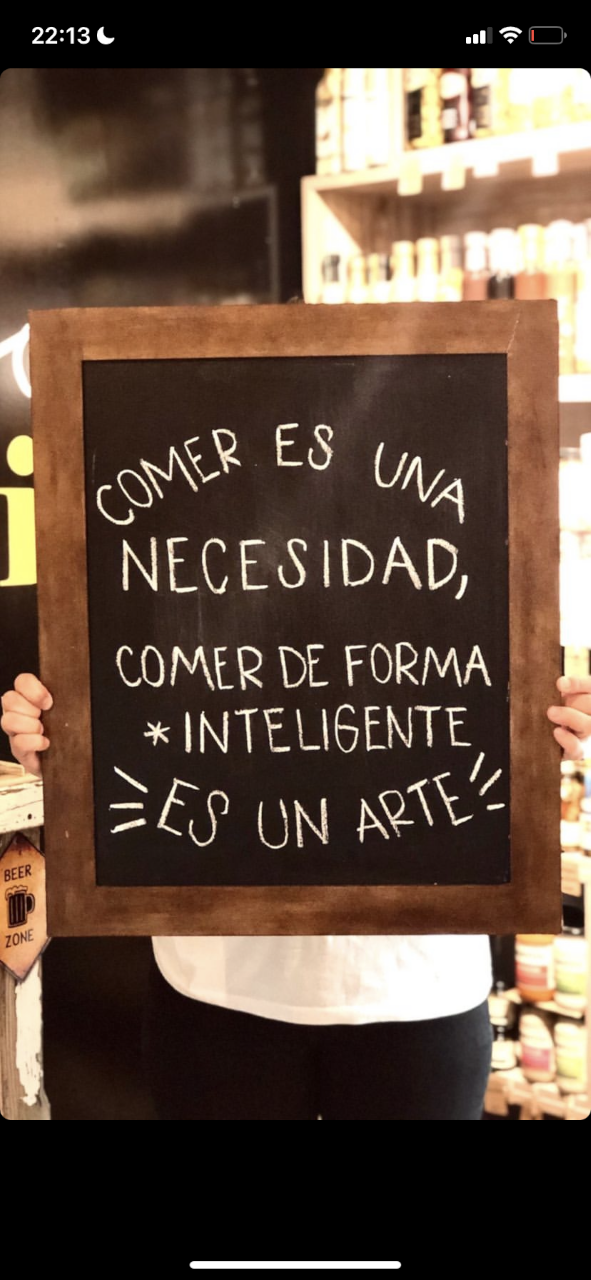 22:13
COMER ES UNA
NECESIDAD,
COMER DE FORMA
*INTELIGENTE
ES UN ARTE
BEER
ZONE